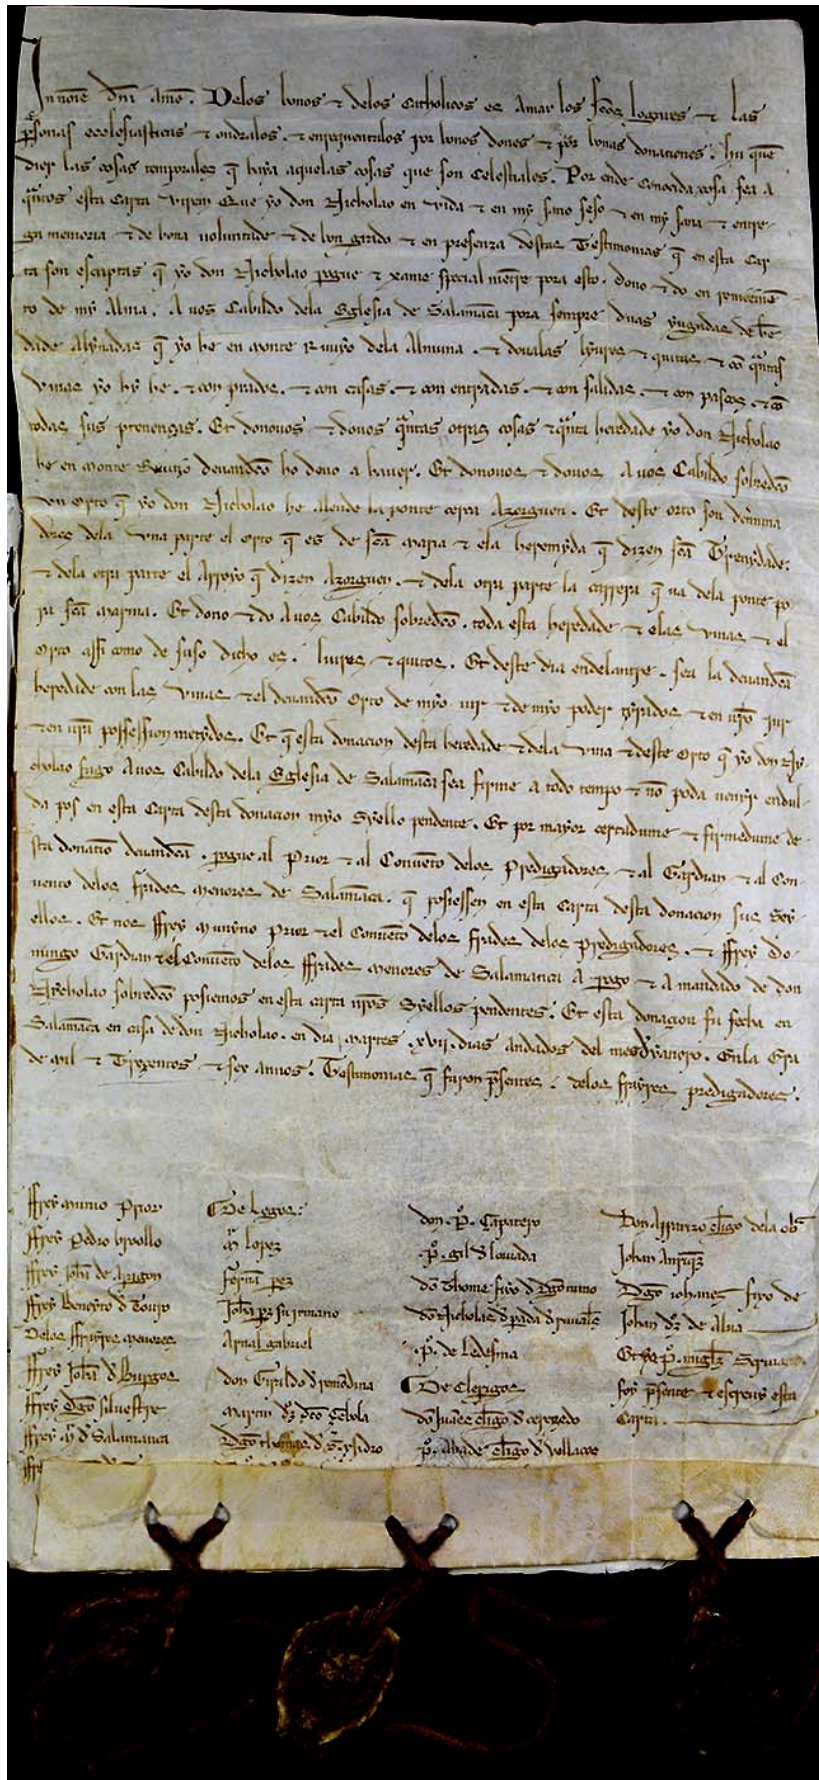 In nom̄e dn̄i am̄e. Delos bonos ⁊ delos Catholicos es Amar los sc̄os logares ⁊ las
ꝑsonas ecclesiasticas ⁊ ondralos. ⁊ enrequentalos por bonos dones ⁊ por bonas donationes.
dier las cosas temporales q̄ haya aquelas cosas que son Celestiales. Por ende Conoçida cosa sea a
qⁿtos esta Carta uiren Que yo don Nicholao en uida ⁊ en my sano seso ⁊ en my sana ⁊ entre-
ga memoria ⁊ de bona uoluntade ⁊ de bon grado ⁊ en presenza destas Testimonias q̄ en esta Car-
ta son escriptas q̄ yo don Nicholao rogue ⁊ xame special mētre pora esto. dono ⁊ do en remēmē-
to de my Alma. A uos Cabildo dela Eglesia de Salamāca pora sempre duas yugadas de h̄e-
dade Alynadas q̄ yo he en monte Ruuyo dela Almuna. ⁊ doualas lyures ⁊ quitas ⁊ cō qⁿtas
uinas yo hy he. ⁊ con prados. ⁊ con casas. ⁊ con entradas. ⁊ con salidas. ⁊ con pascos. ⁊ cō
todas sus ꝑtenenças. Et donouos ⁊ douos qⁿtas otras cosas ⁊ qⁿta heredade yo don Nicholao
he en monte Ruuyo deuandc̄o ho deuo a hauer. Et donouos ⁊ douos A uos Cabildo sobredc̄o
un orto q̄ yo don Nicholao he Alende la ponte cerca Azorguen. Et deste orto son determina
dores dela una parte el orto q̄ es de sc̄a maria ⁊ ela heremyda q̄ dizen sc̄a Trenydade:
⁊ dela otra parte el Arroyo q̄ dizen Azorguen. ⁊ dela otra parte la carrera q̄ ua dela ponte po-
ra sc̄a marina. Et dono ⁊ do A uos Cabildo sobredc̄o. toda esta heredade ⁊ elas uinas ⁊ el
orto assi como de suso dicho es. liures ⁊ quitos. Et deste dia endelantre. sea la deuandc̄a
heredade con las uinas ⁊ el deuandc̄o orto de myo iur ⁊ de myo poder tyrados ⁊ en uro iur
⁊ en ura possession metydos. Et q̄ esta donacion desta heredade ⁊ dela uina ⁊ deste orto q̄ yo don Ny-
cholao fago A uos Cabildo dela Eglesia de Salamāca sea firme a todo tempo ⁊ nō poda uenyr en dul-
da pos en esta Carta desta donacion myo Syello pendente. Et por mayor certadume ⁊ firmedume de-
sta donatiō deuandc̄a. rogue al Prior ⁊ al Conuēto delos Predigadores ⁊ al Gardian ⁊ al Con-
uento delos frades menores de Salamāca. q̄ posiessen en esta Carta desta donacion sus Sey-
ellos. Et nos ffrey munyno Prior ⁊ el Conuēto delos frades delos predigadores. ⁊ ffrey do-
mingo Gardian ⁊ el Conuēto delos ffrades menores de Salamanca A rogo ⁊ A mandado de don
Nycholao sobredc̄o posiemos en esta carta nr̄os Syellos pendentes. Et esta donacion fu fecha en
Salamāca en casa de don Nicholao. en dia martes .xvii. dias andados del mes d̄ yanero. En la Era
de mil ⁊ Trezentos ⁊ sex annos. Testimonias q̄ furon p̄sentes. delos ffrayres predigadores.
ffrey munio Prior
ffrey Pedro
ffrey Joħn de Aragon
ffrey Beneyto d̄
Delos ffrayres menores
ffrey Joħn d̄ Burgos
ffrey dgō siluestre
ffrey d̄ Salamanca
De Legos:
lopez
fernā pez
Joħn pz su irmano
Arnal gabriel
don Giraldo
martin
De Clerigos
don .pº. Çapatero
.pº. gil
dō Thome fiyo d̄ dgō
dō Nicholas
.pº. de Ledesma
Don clīgo dela ob̄
Johan
Dgō iohanes fiyo de
Johan dz de Alua
Et yo pº.
foy p̄sente ⁊ escreuy esta
Carta.